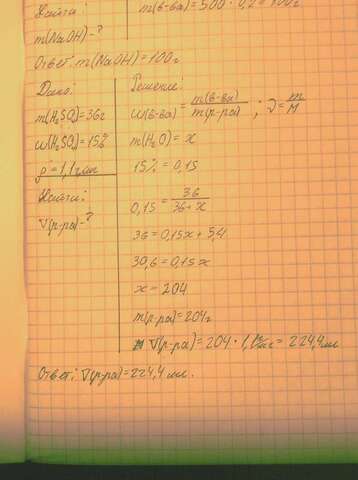 Найти:
m(в-ва)=500·0,2=100г
m(NaOH)-?
Ответ: m(NaOH)=100г
Дано:
m(H₂SO₄)=36г
ω(H₂SO₄)=15%
ρ=1,1г/мл
Найти:
V(р-ра)-?
Решение:
ω(в-ва)=m(в-ва)/m(р-ра); ν=m/M
m(H₂O)=x
15%=0,15
0,15=36/36+x
36=0,15x+5,4
30,6=0,15x
x=204
m(р-ра)=204г
V(р-ра)=204·1,1г/мл=224,4мл
Ответ: V(р-ра)=224,4 мл.